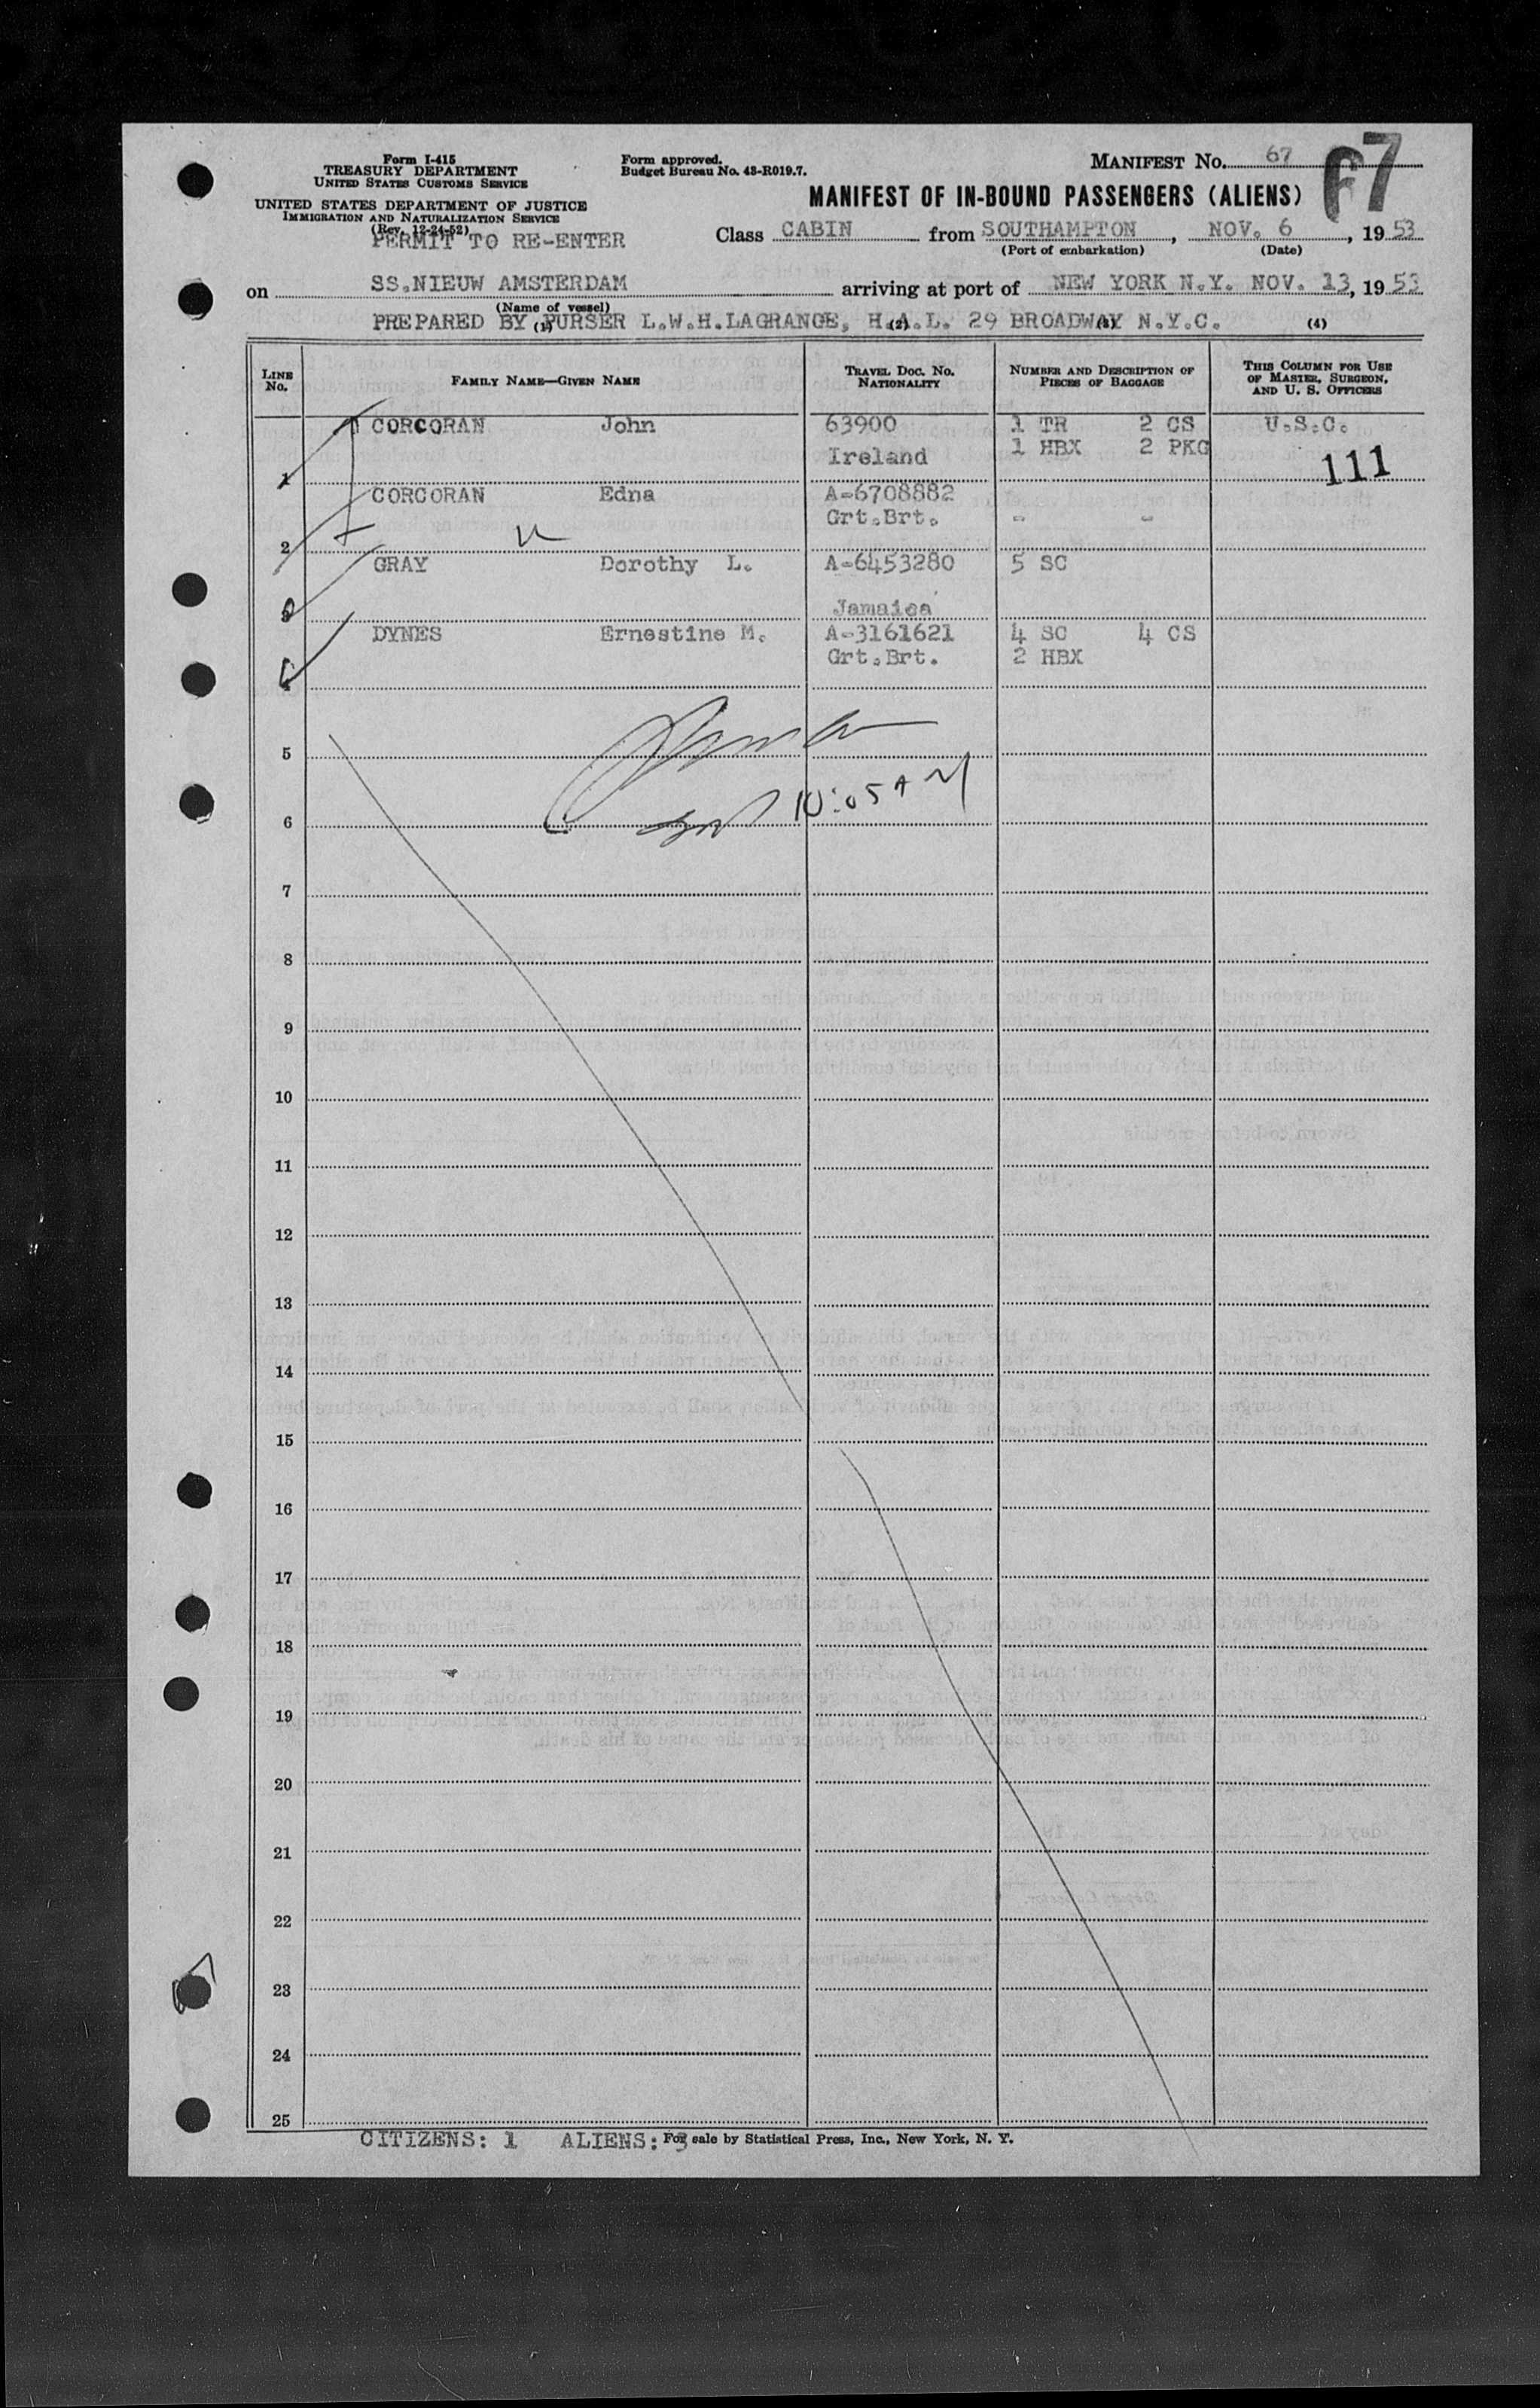 Form I-415
TREASURY DEPARTMENT
UNITED STATES CUSTOMS SERVICE
UNITED STATES DEPARTMENT OF JUSTICE
IMMIGRATION AND NATURALIZATION SERVICE
(Rev. 12-24-52)
PERMIT TO RE-ENTER
Form approved.
Budget Bureau No. 43-R019.7.
MANIFEST No. 67
67
MANIFEST OF IN-BOUND PASSENGERS (ALIENS)
Class CABIN from SOUTHAMPTON, NOV. 6, 1953
(Port of embarkation) (Date)
on SS.NIEUW AMSTERDAM arriving at port of NEW YORK N.Y. NOV. 13, 1953
(Name of vessel)
PREPARED BY PURSER L.W.H.LAGRANGE, H.A.L. 29 BROADWAY N.Y.C.
(1) (2) (3) (4)
LINE No. FAMILY NAME—GIVEN NAME TRAVEL DOC. NO. NATIONALITY NUMBER AND DESCRIPTION OF PIECES OF BAGGAGE THIS COLUMN FOR USE OF MASTER, SURGEON, AND U. S. OFFICERS
CORCORAN John 63900 1 TR 2 CS U.S.C.
1 Ireland 1 HBX 2 PKG 111
CORCORAN Edna A-6708882
2 Grt.Brt. - -
GRAY Dorothy L. A-6453280 5 SC
3 Jamaica
DYNES Ernestine M. A-3161621 4 SC 4 CS
4 Grt.Brt. 2 HBX
5
6 10:05 AM
7
8
9
10
11
12
13
14
15
16
17
18
19
20
21
22
23
24
25
CITIZENS: 1 ALIENS: 3 For sale by Statistical Press, Inc., New York, N. Y.